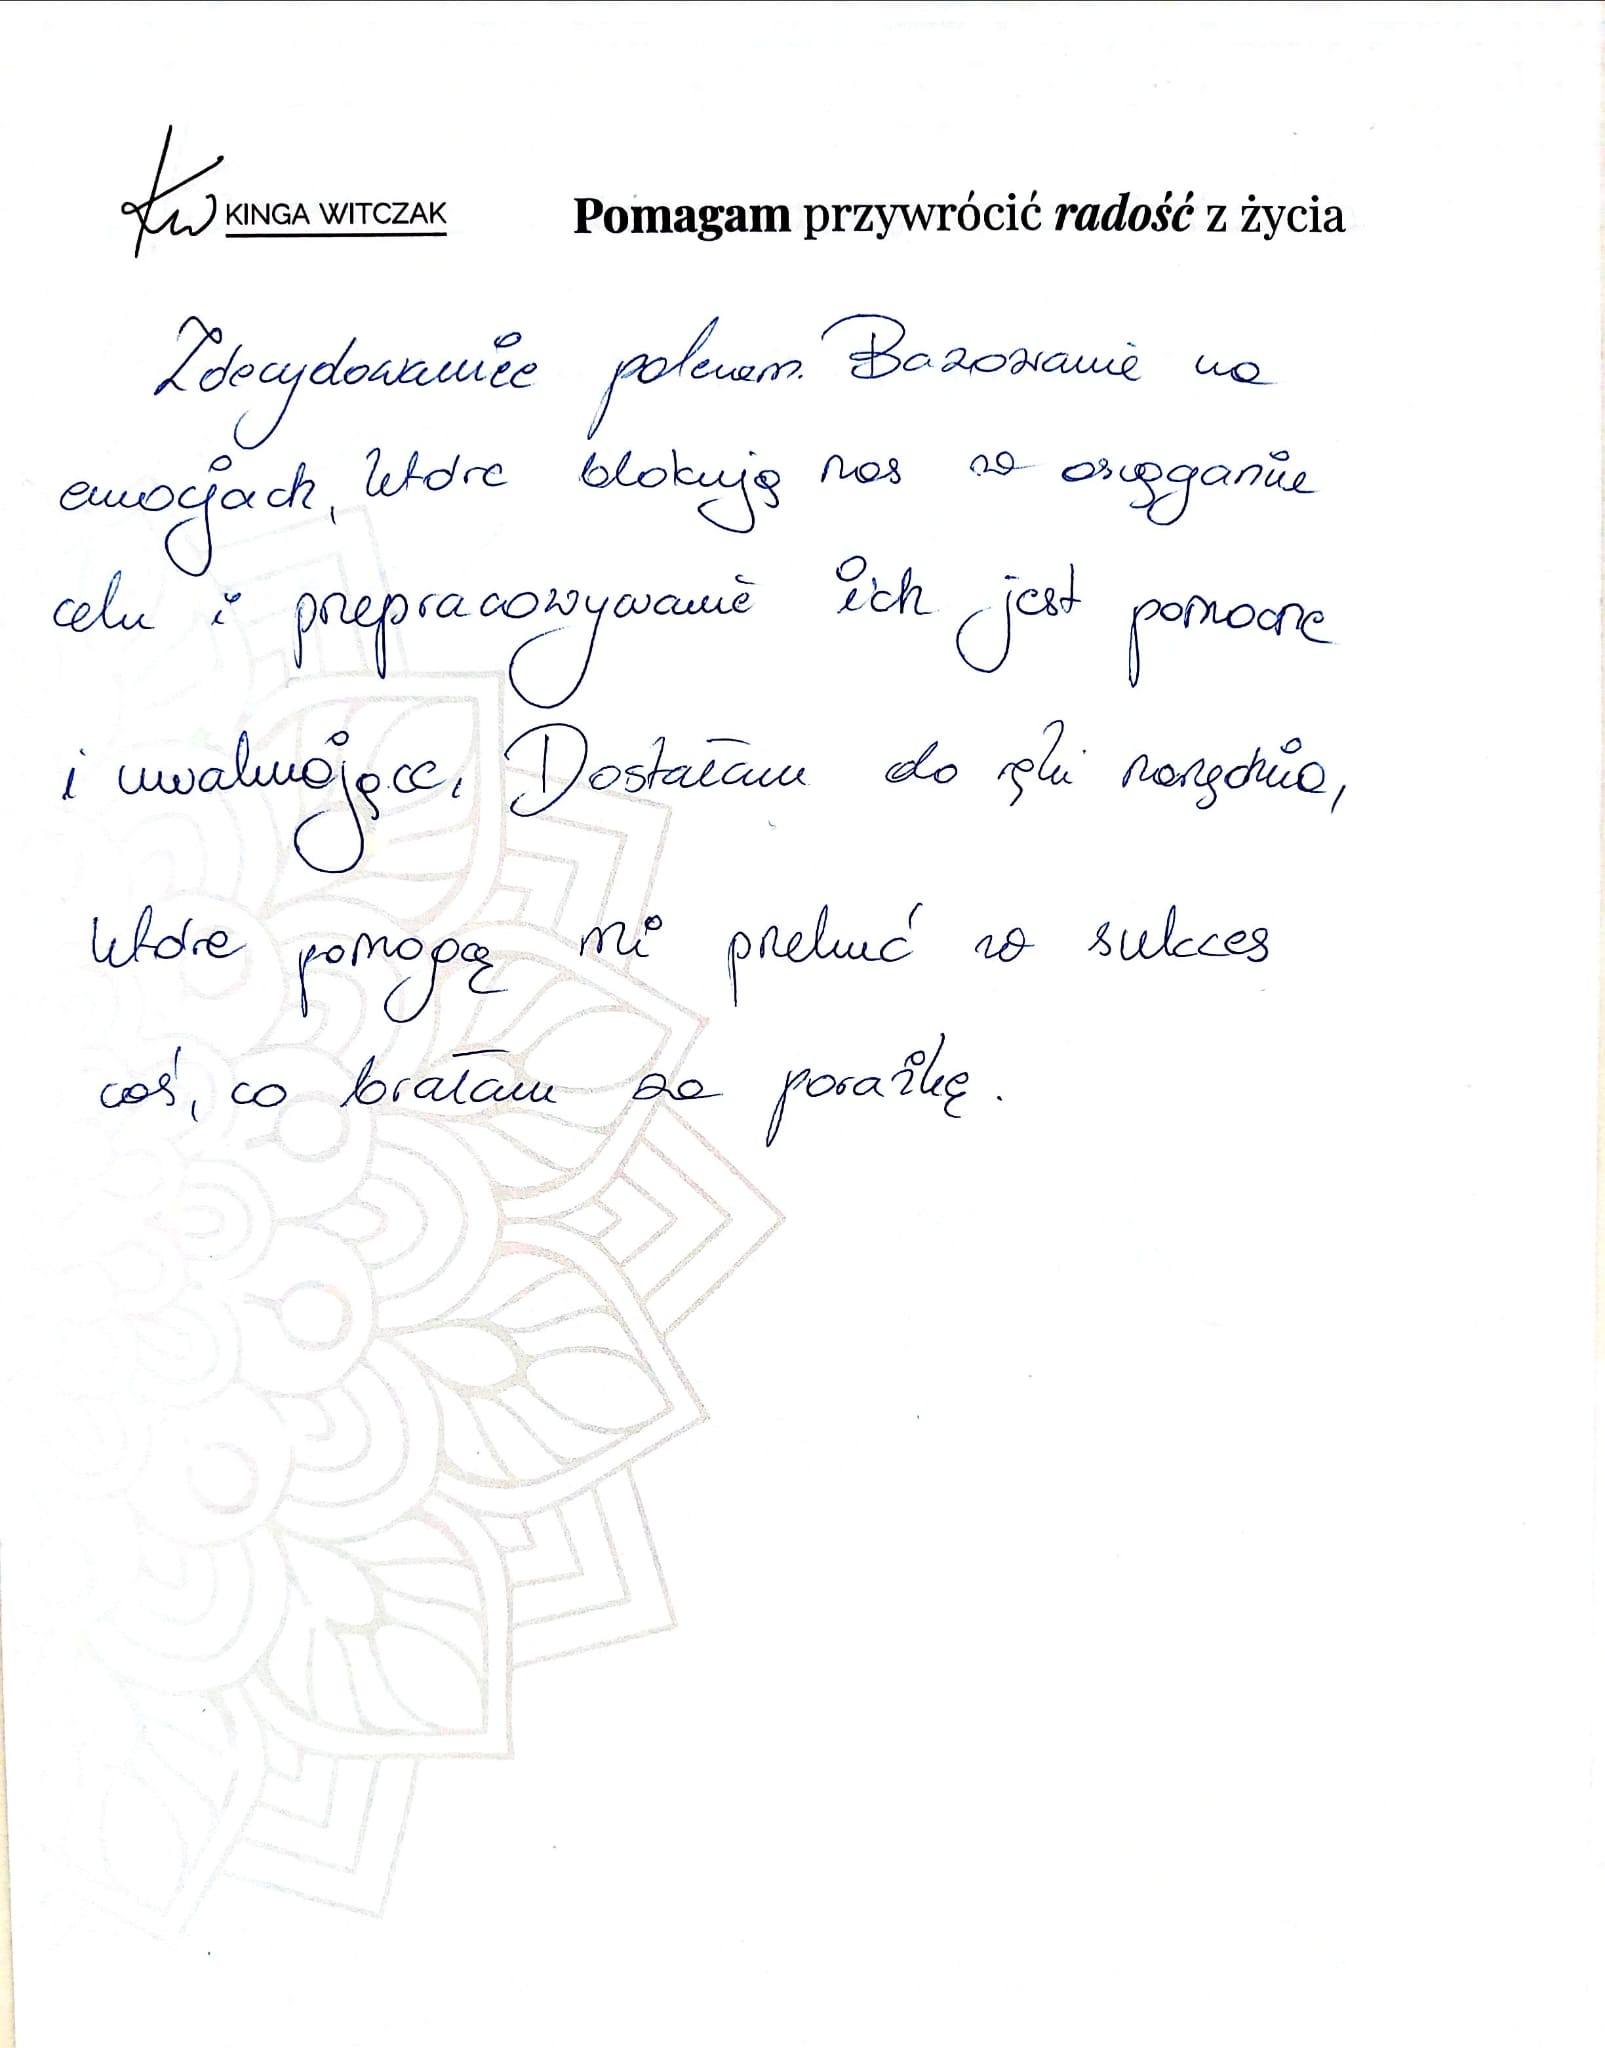 Kw KINGA WITCZAK Pomagam przywrócić radość z życia
Zdecydowanie polecam. Bazowanie na
emocjach, które blokują nas w osiąganiu
celu i przepracowywanie ich jest pomocne
i uwalniające. Dostałam do ręki narzędzia,
które pomogą mi przekuć w sukces
coś, co brałam za porażkę.